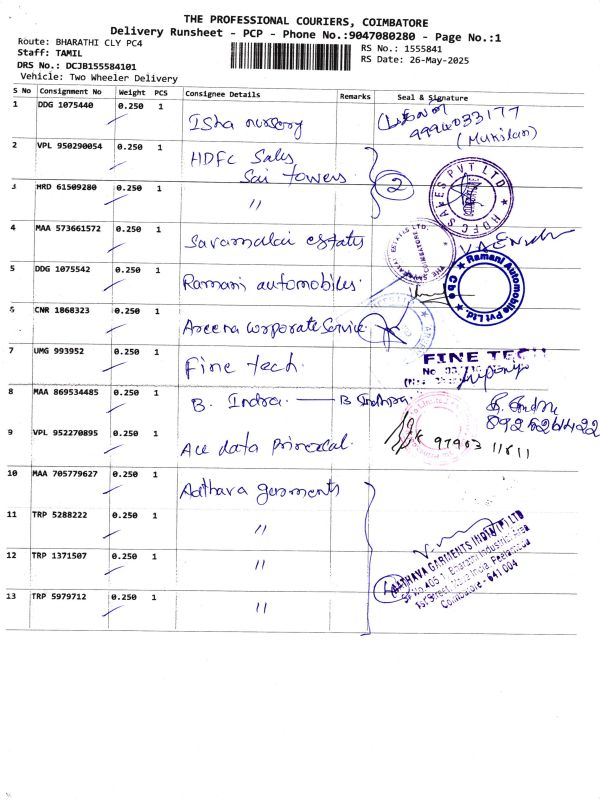 THE PROFESSIONAL COURIERS, COIMBATORE
Delivery Runsheet - PCP - Phone No.:9047080280 - Page No.:1
Route: BHARATHI CLY PC4
RS No.: 1555841
Staff: TAMIL
RS Date: 26-May-2025
DRS No.: DCJB155584101
Vehicle: Two Wheeler Delivery
S No Consignment No Weight PCS Consignee Details Remarks Seal & Signature
1 DDG 1075440 0.250 1 Isha nursery
9994033177
(Mukilan)
2 VPL 950290054 0.250 1 HDFC Sales
Sai towers
2
HDFC SALES PVT LTD
3 HRD 61509280 0.250 1 "
4 MAA 573661572 0.250 1 Savamalai estates
5 DDG 1075542 0.250 1 Ramani automobiles
Ramani Automobile Pvt Ltd.
Cbe
6 CNR 1868323 0.250 1 Areena corporate Service
7 UMG 993952 0.250 1 Fine tech
FINE TECH
8 MAA 869534485 0.250 1 B. Indra. B Indhra
8925264422
9 VPL 952270895 0.250 1 Ace data primexcal.
97903 11811
10 MAA 705779627 0.250 1 Aathava garments
11 TRP 5288222 0.250 1 "
12 TRP 1371507 0.250 1 "
4
AATHAVA GARMENTS INDIA (P) LTD
SF No 405 1, Bharathi Industrial Area
1st Street, Nava India, Peelamedu
Coimbatore - 641 004
13 TRP 5979712 0.250 1 "